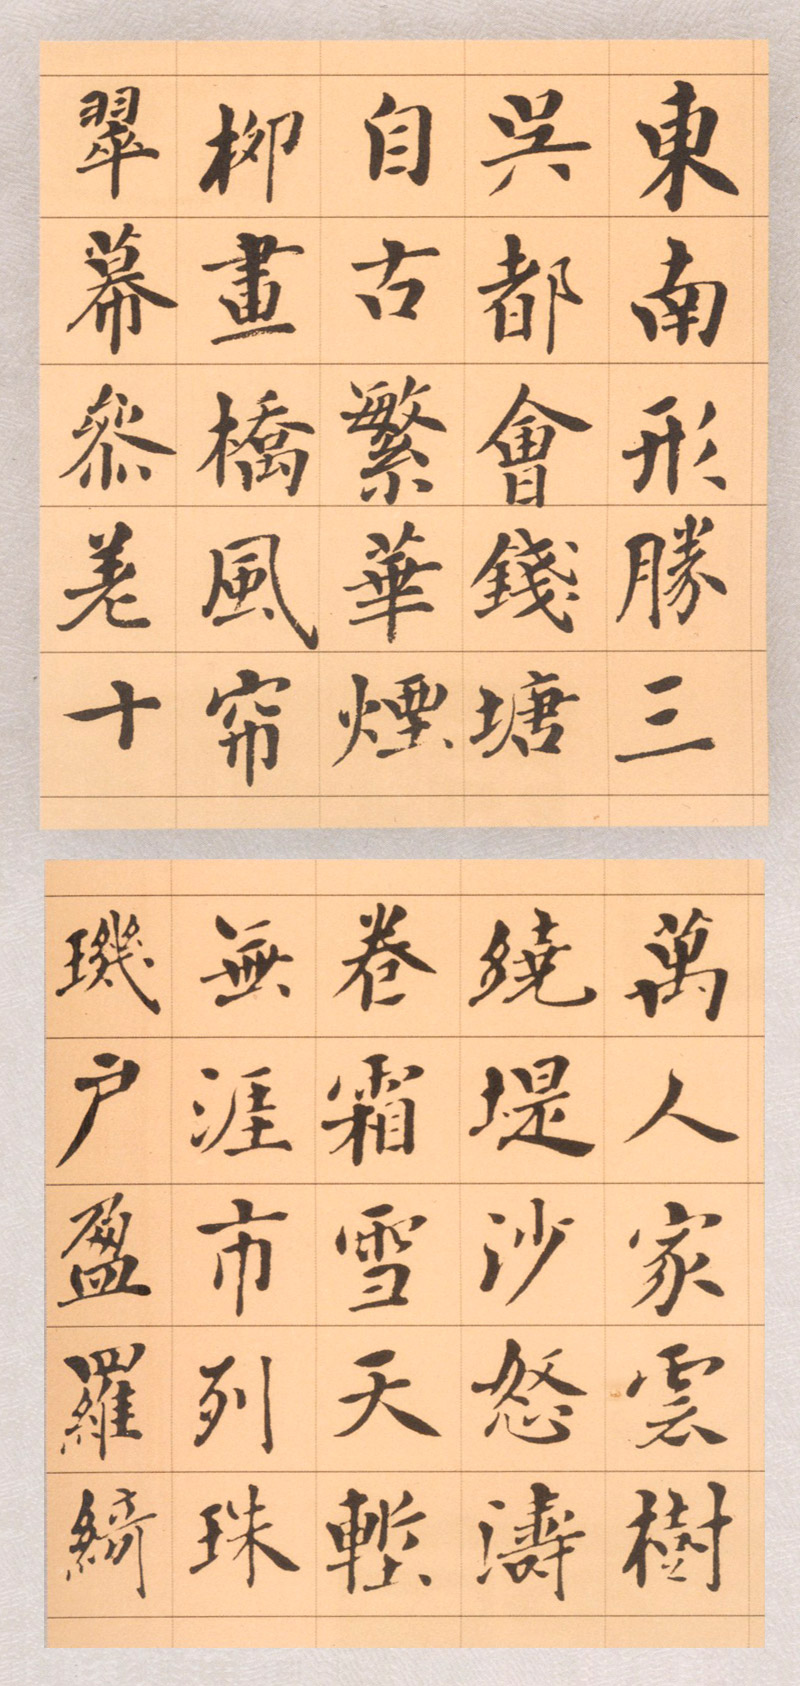 東南形勝三
吳都會錢塘
自古繁華煙
柳畫橋風帘
翠幕參差十
萬人家雲樹
繞堤沙怒濤
卷霜雪天塹
無涯市列珠
璣戶盈羅綺